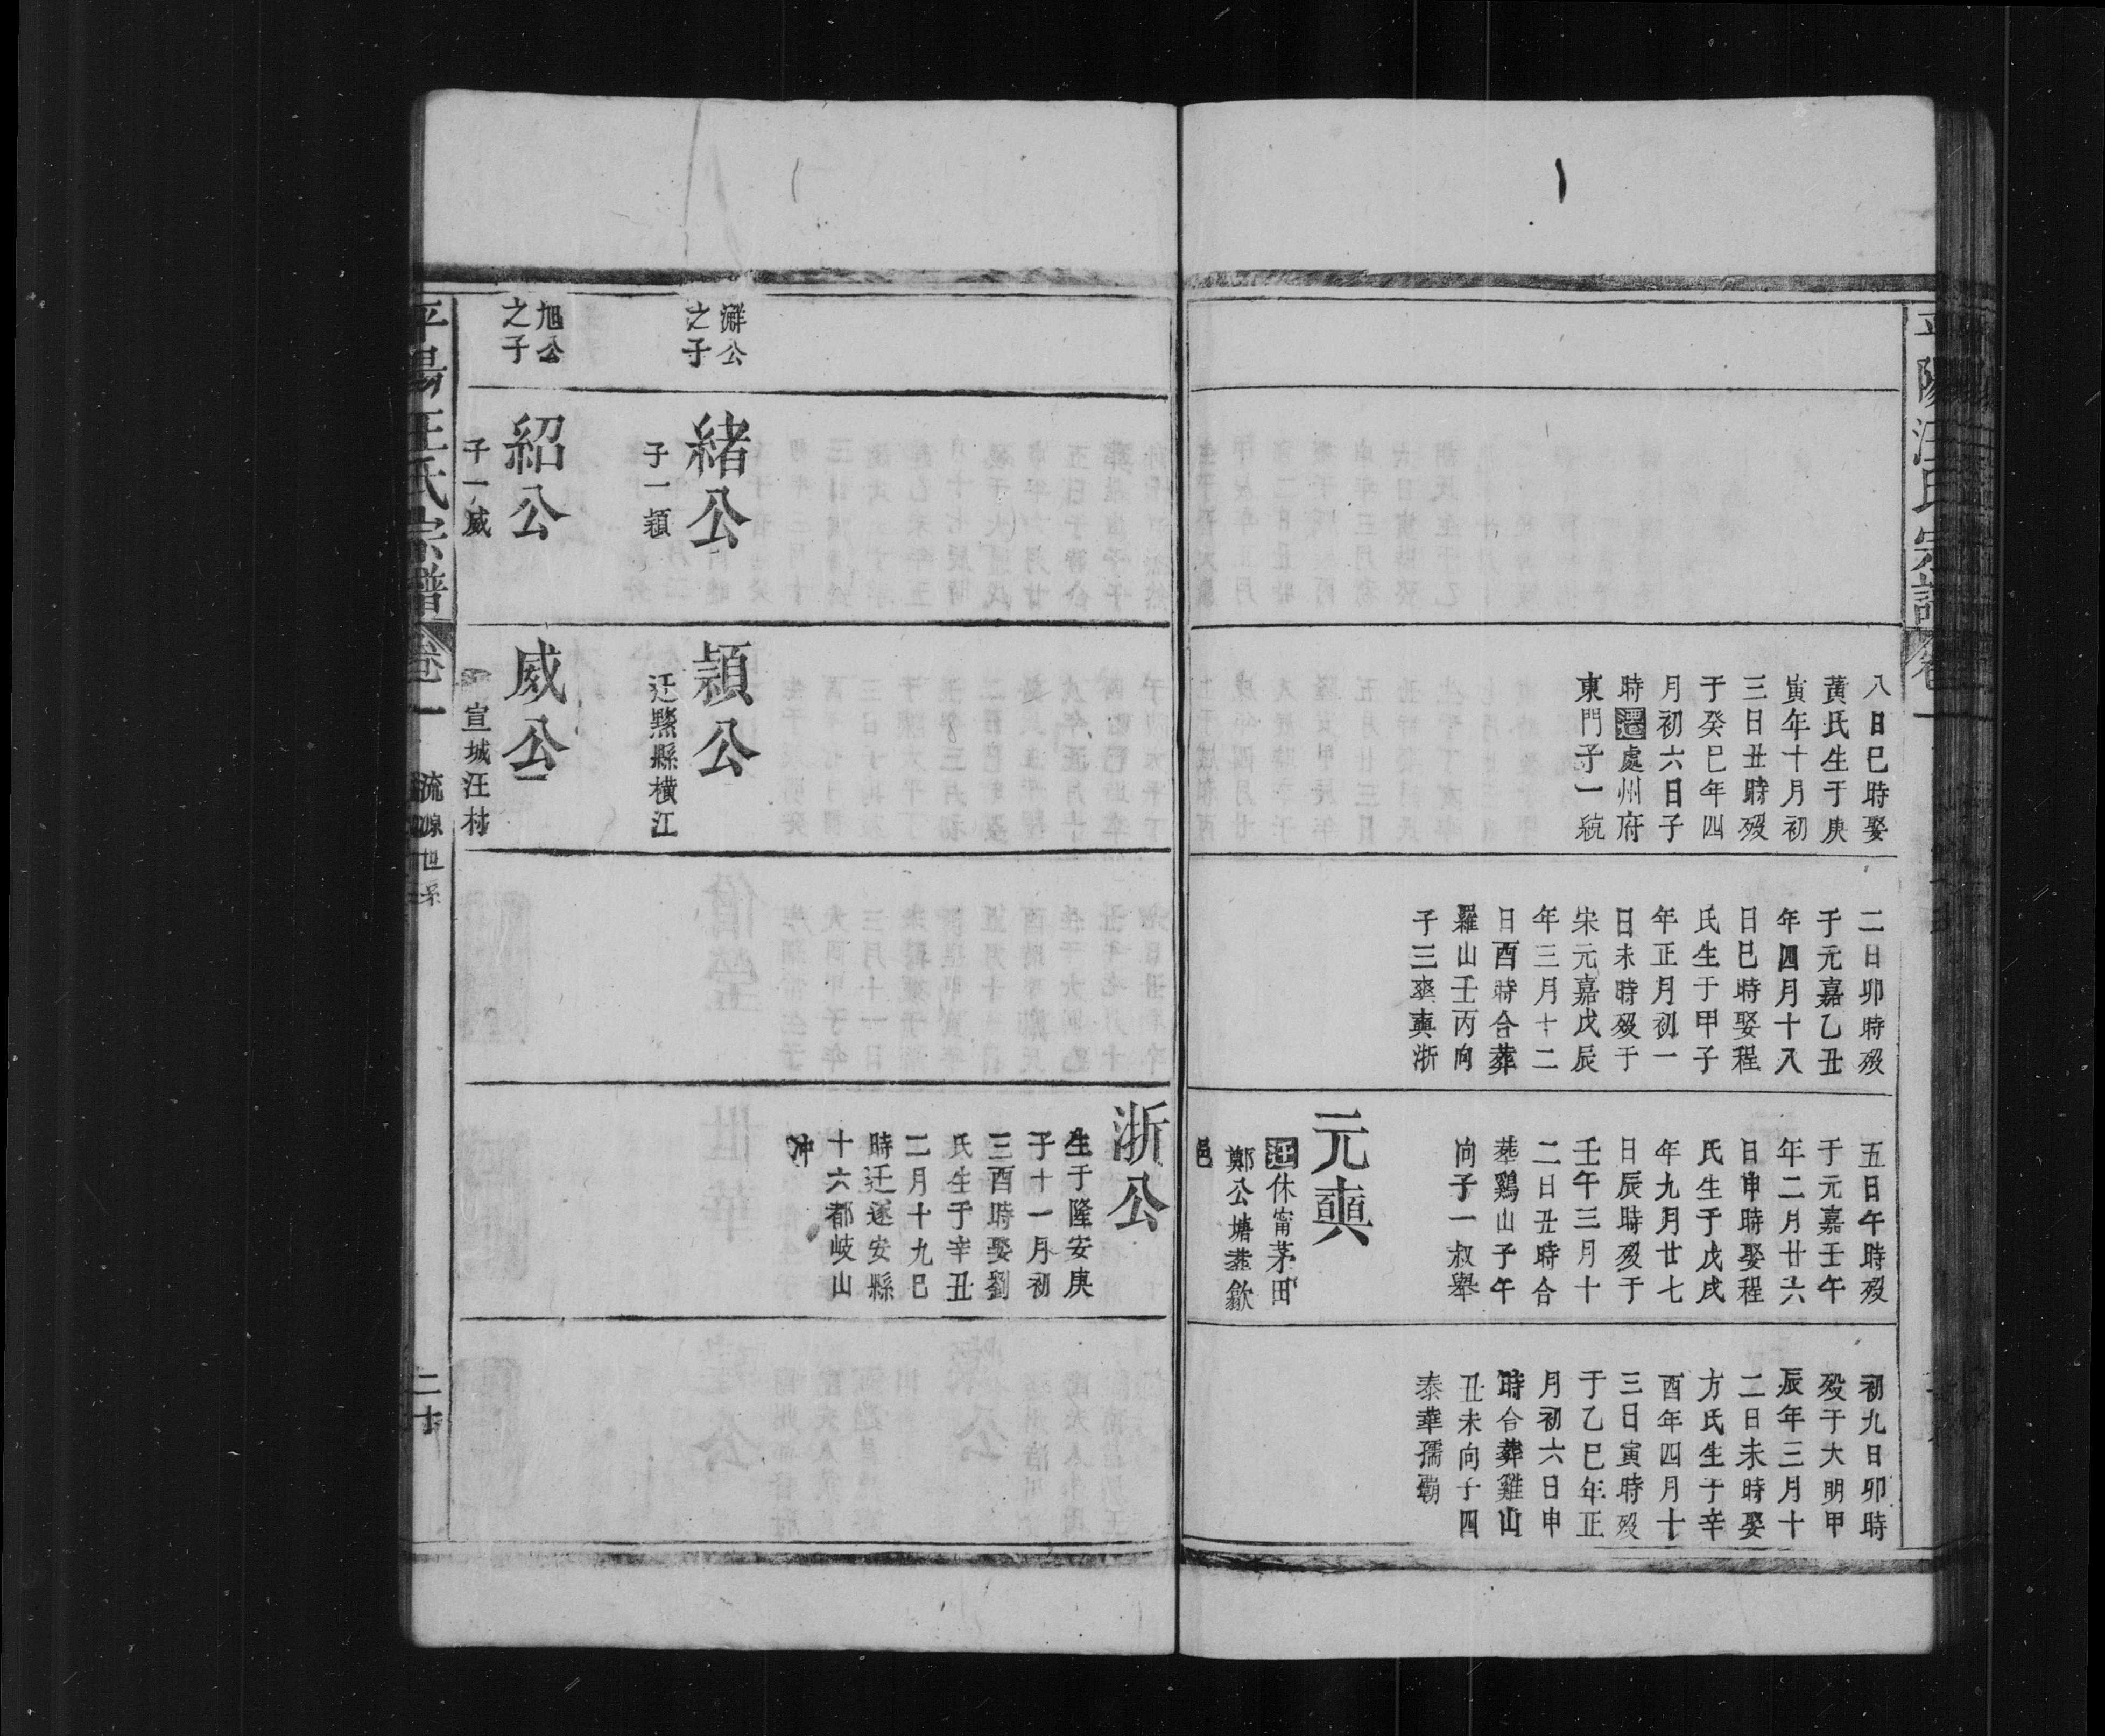 平陽汪氏宗譜
卷一
八日巳時娶
黃氏生于庚
寅年十月初
三日丑時歿
于癸巳年四
月初六日子
時遷處州府
東門子一統
二日卯時歿
于元嘉乙丑
年四月十八
日巳時娶程
氏生于甲子
年正月初一
日未時歿于
宋元嘉戊辰
年三月十二
日酉時合葬
羅山壬丙向
子三奭浙
五日午時歿
于元嘉壬午
年二月廿六
日申時娶程
氏生于戊戌
年九月廿七
日辰時歿于
壬午三月十
二日丑時合
塟鷄山子午
向子一叔舉
元奭
休甯茅田
鄭公塘塟歙
邑
初九日卯時
歿于大明甲
辰年三月十
二日未時娶
方氏生于辛
酉年四月十
三日寅時歿
于乙巳年正
月初六日申
時合葬雞山
丑未向子四
泰華孺覇
浙公
生于隆安庚
子十一月初
三酉時娶劉
氏生于辛丑
二月十九巳
時迁遂安縣
十六都岐山
冲
澥公
之子
緒公
子一穎
穎公
迁黟縣橫江
旭公
之子
紹公
子一威
威公
宣城汪村
平陽汪氏宗譜
卷一
流源世系
二十